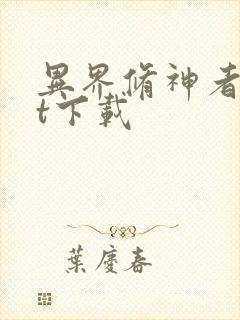 異界脩神者
t下載
葉慶春